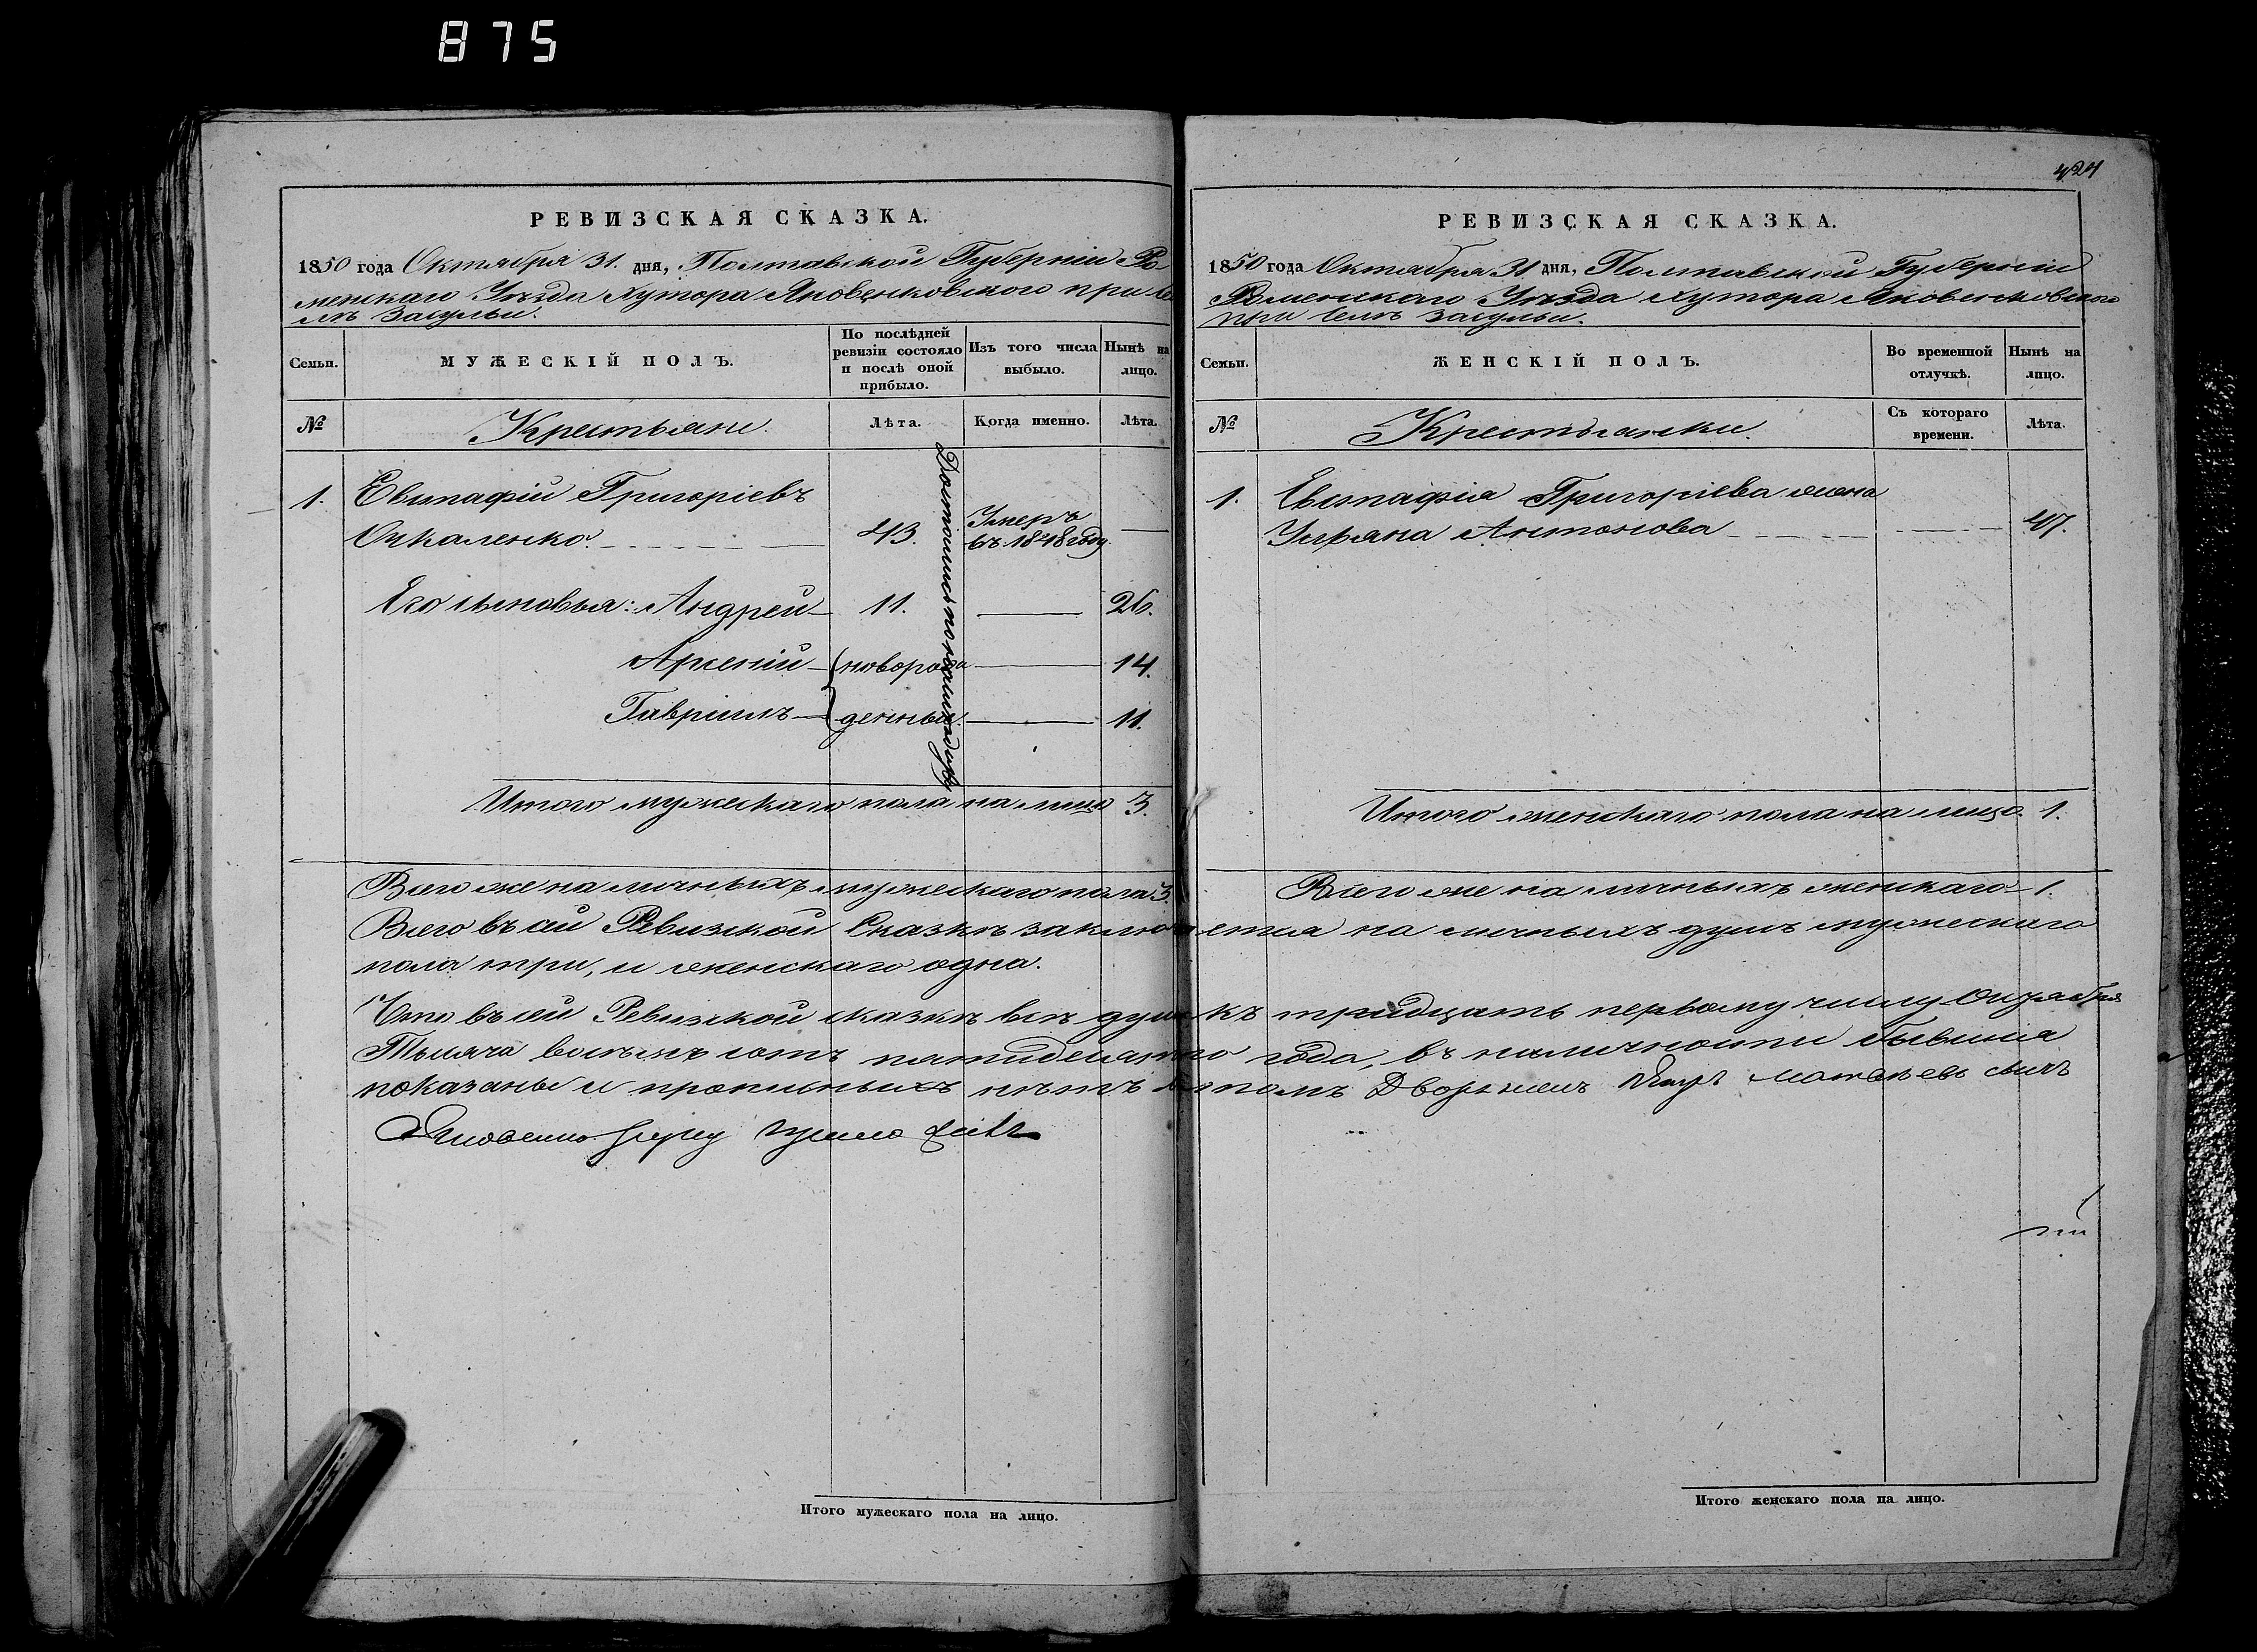 875
РЕВИЗСКАЯ СКАЗКА.
1850 года Октября 31. дня, Полтавской Губерніи Ро
менскаго Уѣзда Хутора Яковенковского при се
лѣ Засульи.
Семьи.
МУЖЕСКІЙ ПОЛЪ.
По послѣдней ревизіи состояло и послѣ оной прибыло.
Изъ того числа выбыло.
Нынѣ на лицо.
№
Крестьяне.
Лѣта.
Когда именно.
Лѣта.
1. Евстафій Григоріевъ
Очкаленко. 43. Умеръ въ 1848 году —
Его сыновья: Андрей 11. — 26.
Арсеній новорож — 14.
Гавріилъ денны. — 11.
Итого мужескаго пола на лицо 3.
Всего же на личныхъ мужескаго пола 3.
424
РЕВИЗСКАЯ СКАЗКА.
1850 года Октября 31 дня, Полтавской Губерніи
Роменскаго Уѣзда Хутора Яковенковского
при селѣ Засульи.
Семьи.
ЖЕНСКІЙ ПОЛЪ.
Во временной отлучкѣ.
Нынѣ на лицо.
№
Крестьянки.
Съ котораго времени.
Лѣта.
1. Евстафія Григоріева жена
Ульяна Антонова — 47.
Итого женскаго пола на лицо. 1.
Всего же на личныхъ женскаго 1.
Всего въ сей Ревизской Сказкѣ заключается на личныхъ душъ мужескаго
пола три, и женскаго одна.
Что въ сей Ревизской сказкѣ всѣ души къ тридцать первому числу Октября
Тысяча восемь сотъ пятидесятого года, въ наличности бывшія
показаны и прописныхъ нѣтъ въ томъ Дворянинъ сынъ
Яковенко
Итого мужескаго пола на лицо.
Итого женскаго пола на лицо.